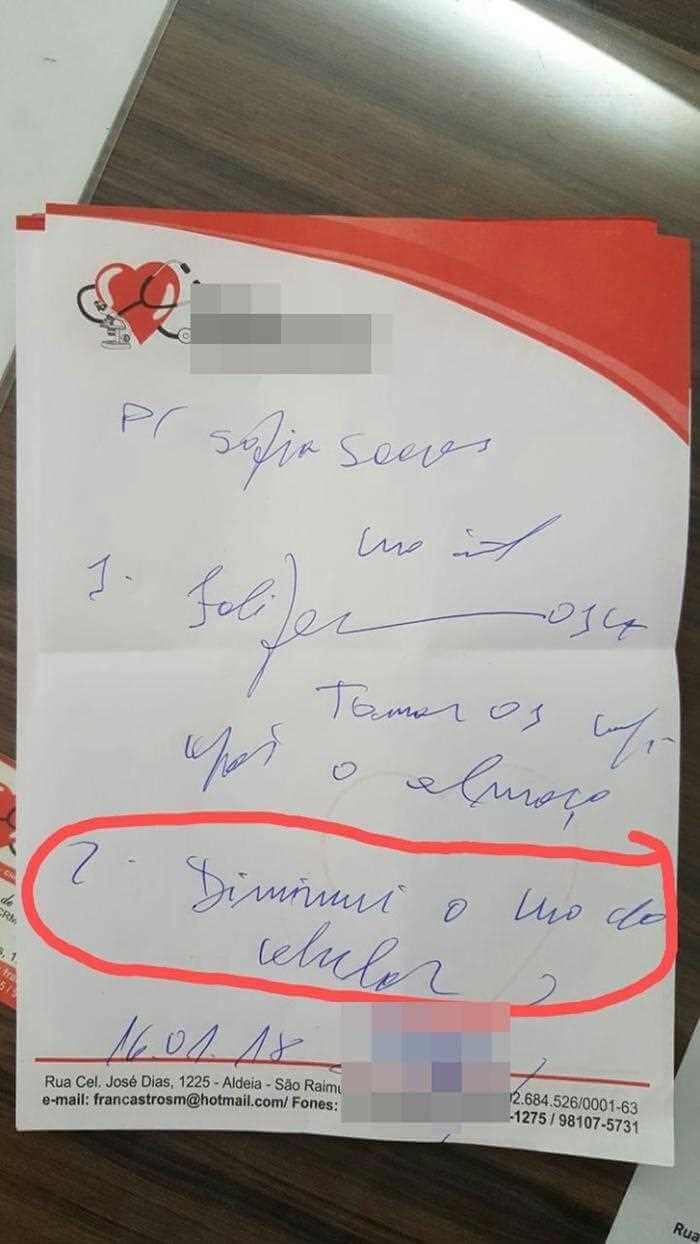 P/ Sofia Soares
Uso int
1. Folifer 01 cx
Tomar 01 comp.
após o almoço
2. Diminui o uso do
celular
16.01.18
Rua Cel. José Dias, 1225 - Aldeia - São Raimu
2.684.526/0001-63
e-mail: francastrosm@hotmail.com/ Fones:
-1275 / 98107-5731
Rua